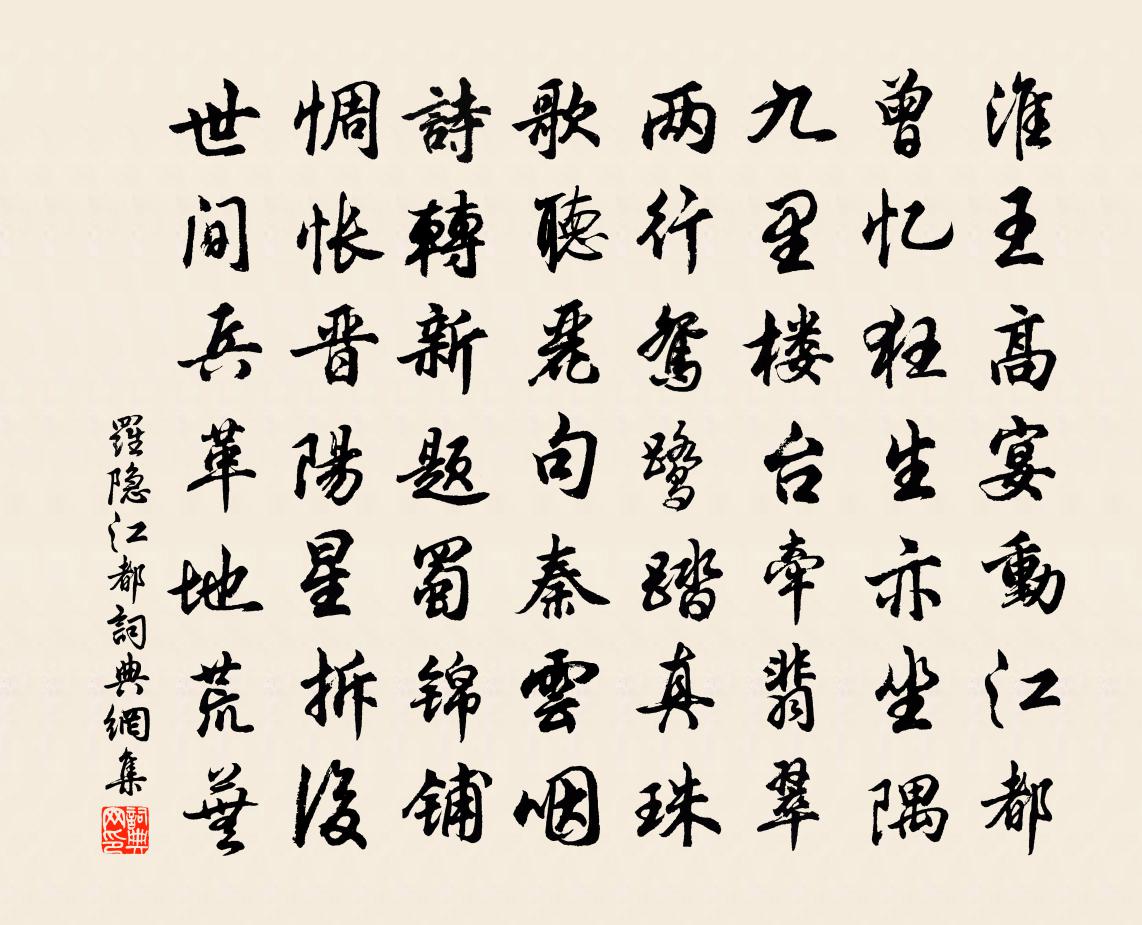 淮王高宴動江都
曾忆狂生亦坐隅
九里楼台牵翡翠
两行鸳鹭踏真珠
歌聽麗句秦雲咽
詩轉新题蜀锦铺
惆怅晋陽星拆後
世间兵革地荒蕪
羅隐江都詞典網集
詞典网印